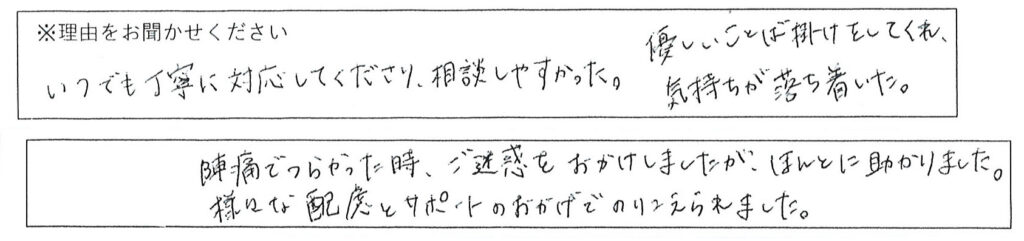 ※理由をお聞かせください
いつでも丁寧に対応してくださり、相談しやすかった。
優しいことば掛けをしてくれ、
気持ちが落ち着いた。
陣痛でつらかった時、ご迷惑をおかけしましたが、ほんとに助かりました。
様々な配慮とサポートのおかげでのりこえられました。